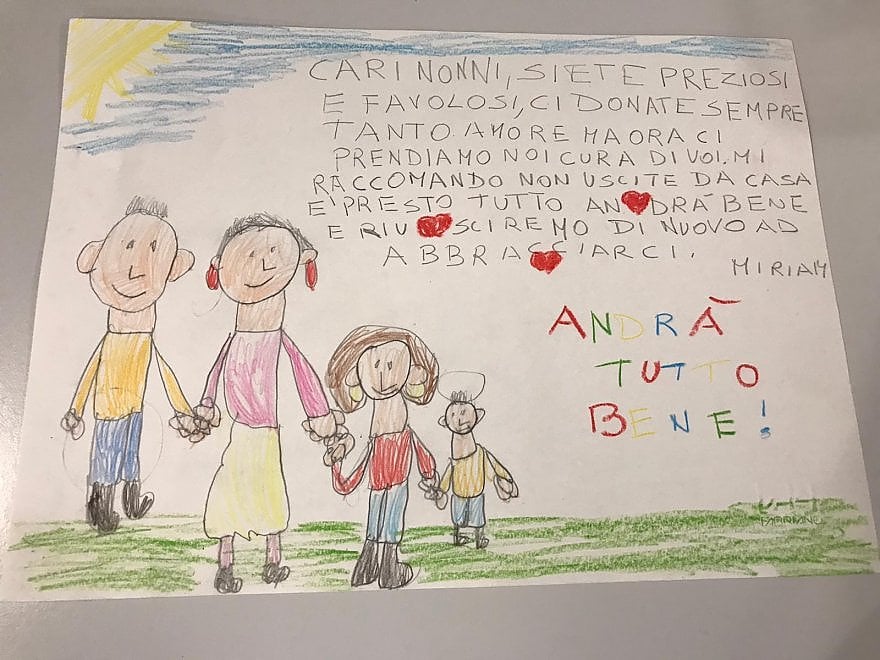 CARI NONNI, SIETE PREZIOSI
E FAVOLOSI, CI DONATE SEMPRE
TANTO AMORE MA ORA CI
PRENDIAMO NOI CURA DI VOI. MI
RACCOMANDO NON USCITE DA CASA
E' PRESTO TUTTO ANDRÀ BENE
E RIUSCIREMO DI NUOVO AD
ABBRACCIARCI.
MIRIAM
ANDRÀ
TUTTO
BENE!